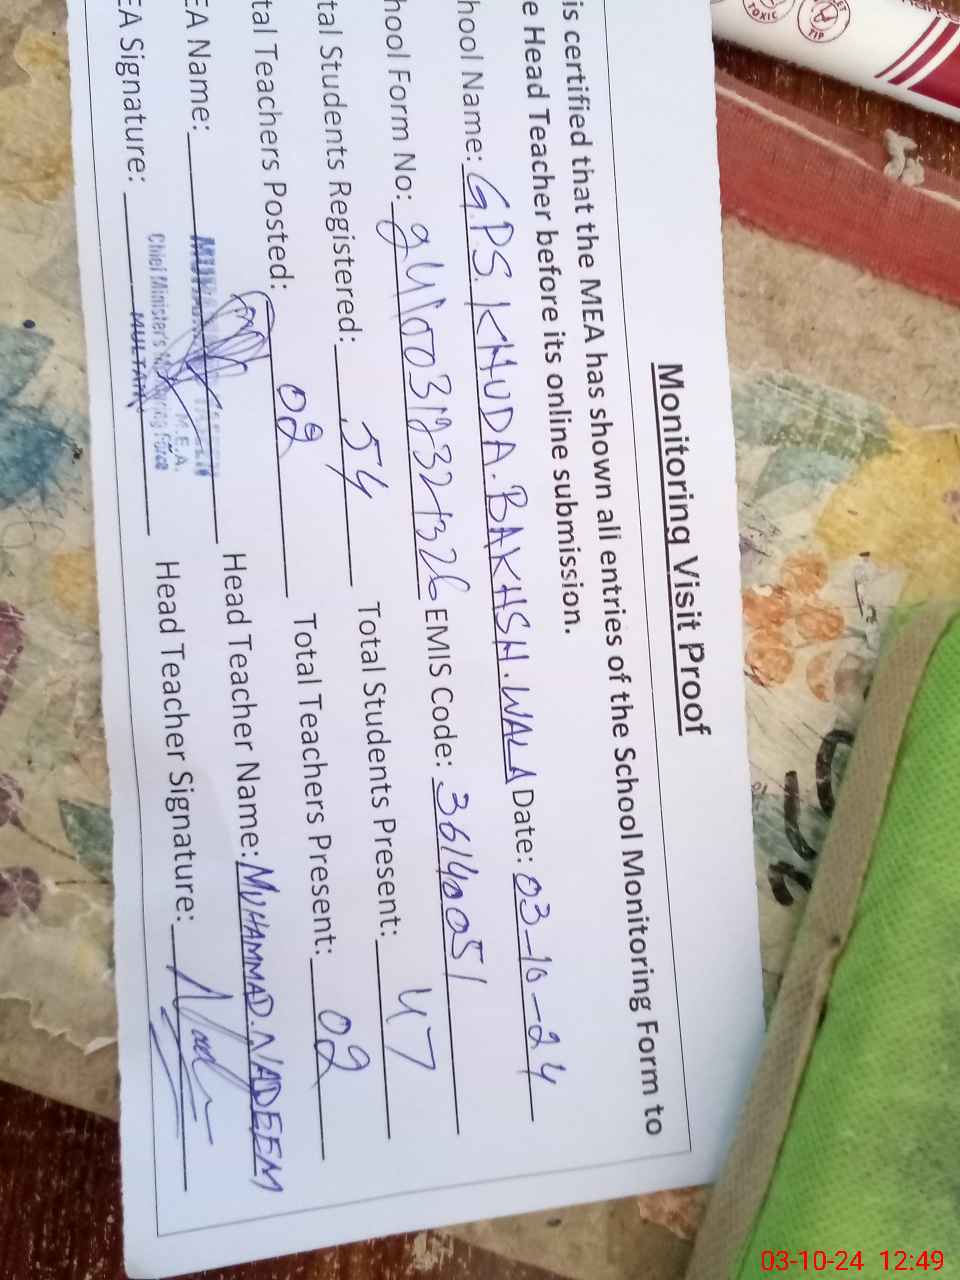 Monitoring Visit Proof
is certified that the MEA has shown all entries of the School Monitoring Form to
e Head Teacher before its online submission.
hool Name: G.P.S. KHUDA.BAKHSH.WALA Date: 03-10-24
hool Form No: EMIS Code: 36140051
tal Students Registered: 54 Total Students Present: 47
tal Teachers Posted: 02 Total Teachers Present: 02
EA Name: Head Teacher Name: MUHAMMAD.NADEEM
EA Signature: Head Teacher Signature:
M.E.A.
Chief Minister's Monitoring Force
MULTAN
TOXIC
TIP
03-10-24 12:49